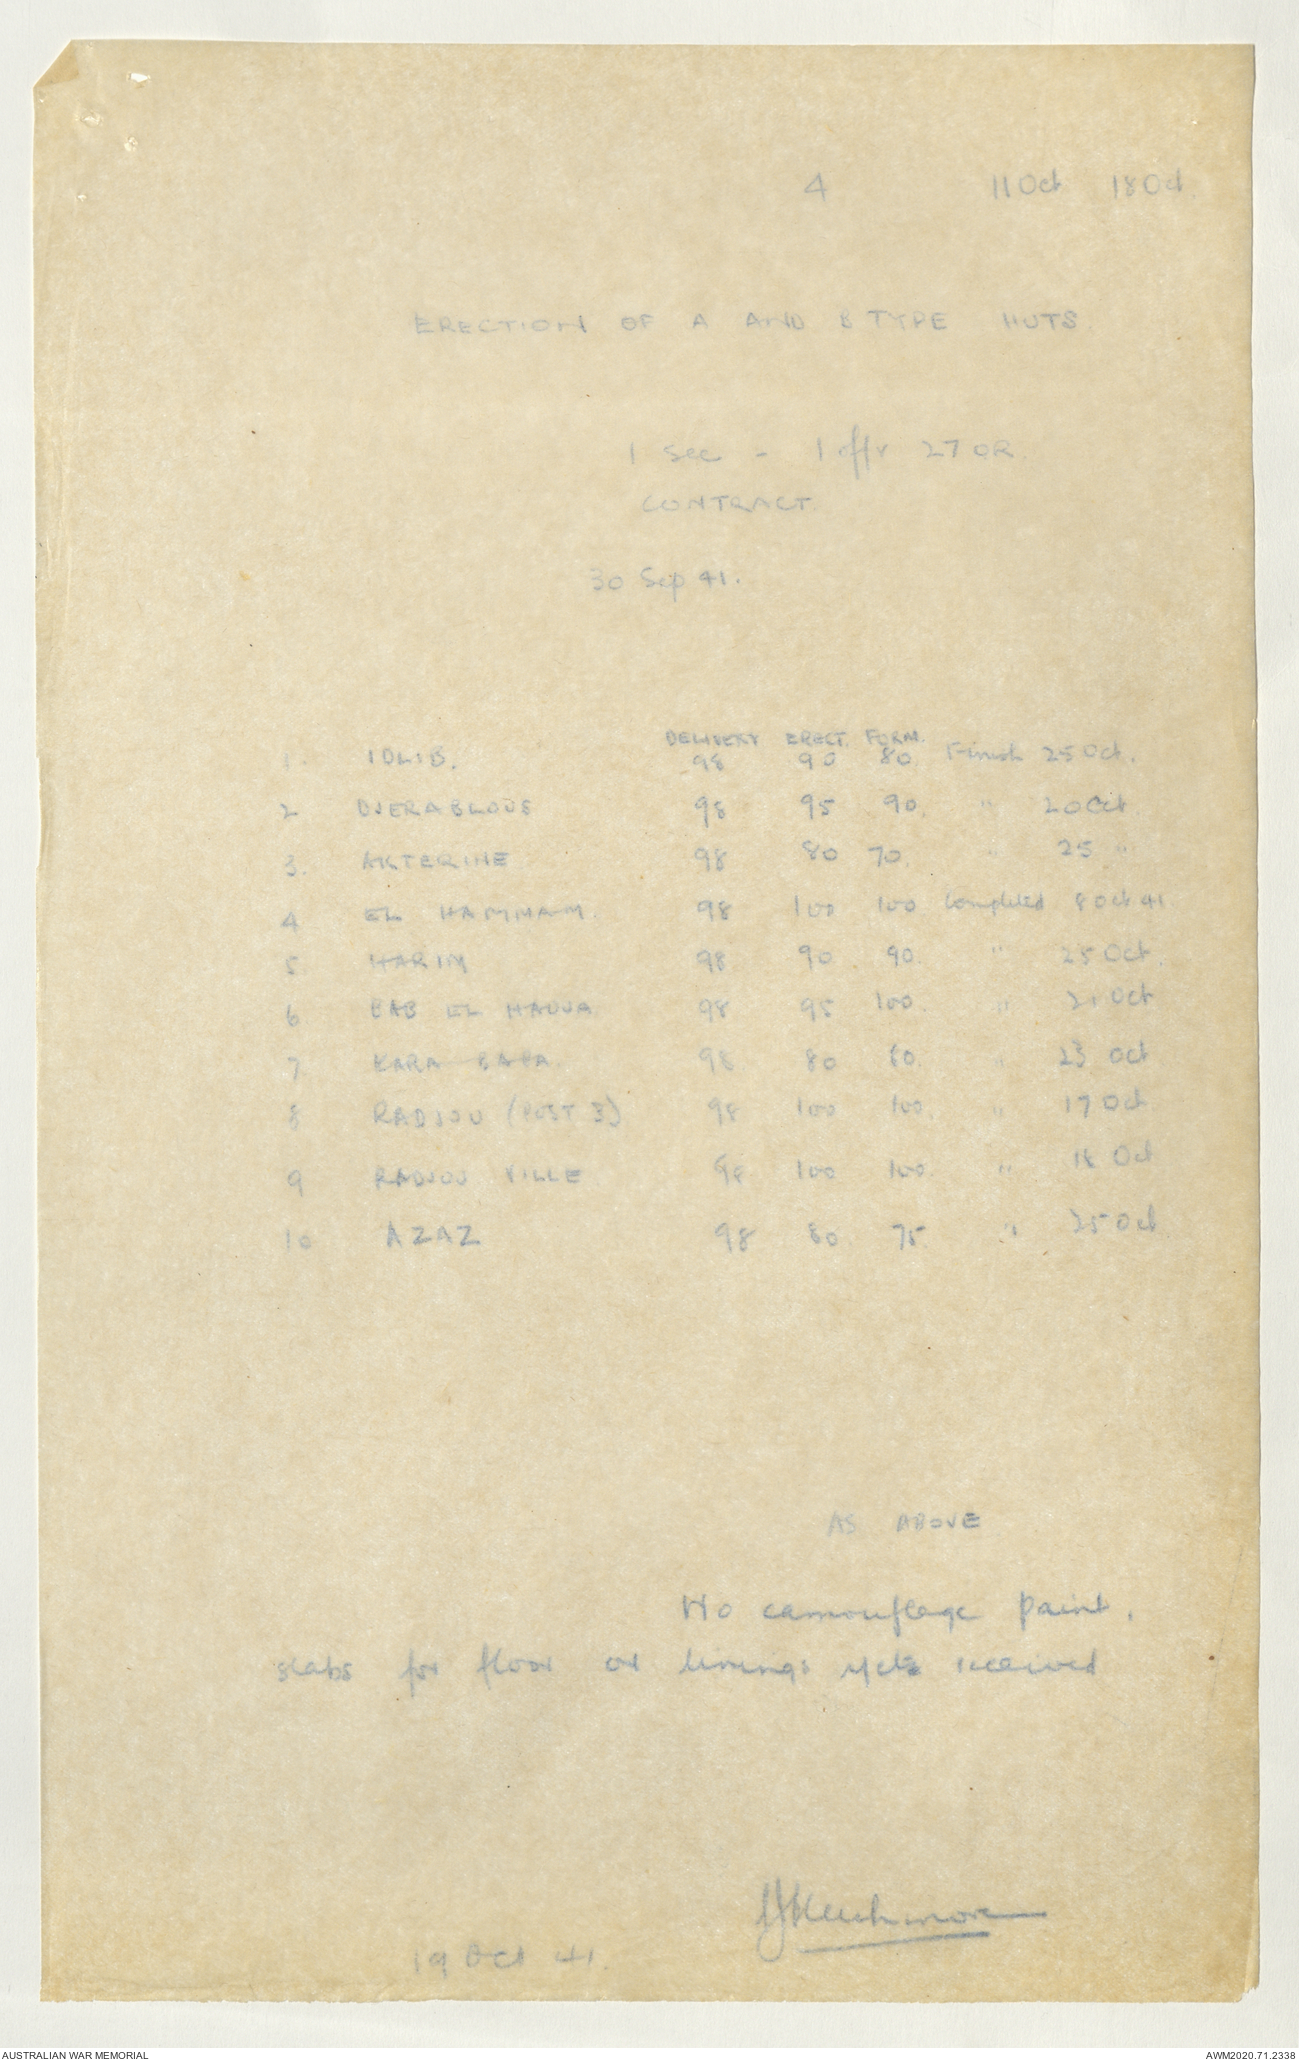 4 11 Oct 18 Oct.
ERECTION OF A AND B TYPE HUTS
1 Sec - 1 offr 27 OR.
CONTRACT.
30 Sep 41.
DELIVERY ERECT. FORM.
1. IDLIB. 98 90 80 Finish 25 Oct.
2 DJERABLOUS 98 95 90. " 20 Oct.
3. AKTERINE 98 80 70. " 25 "
4 EL HAMMAM. 98 100 100 Completed 8 Oct 41.
5 HARIM 98 90 90. " 25 Oct.
6 BAB EL HAOUA 98 95 100. " 21 Oct
7 KARA BABA. 98 80 80. " 23 Oct
8 RADJOU (POST 3) 98 100 100. " 17 Oct
9 RADJOU VILLE 98 100 100. " 18 Oct
10 AZAZ 98 80 75. " 25 Oct
AS ABOVE
No camouflage paint,
slabs for floor or linings yet received
19 Oct 41.
AUSTRALIAN WAR MEMORIAL AWM2020.71.2338